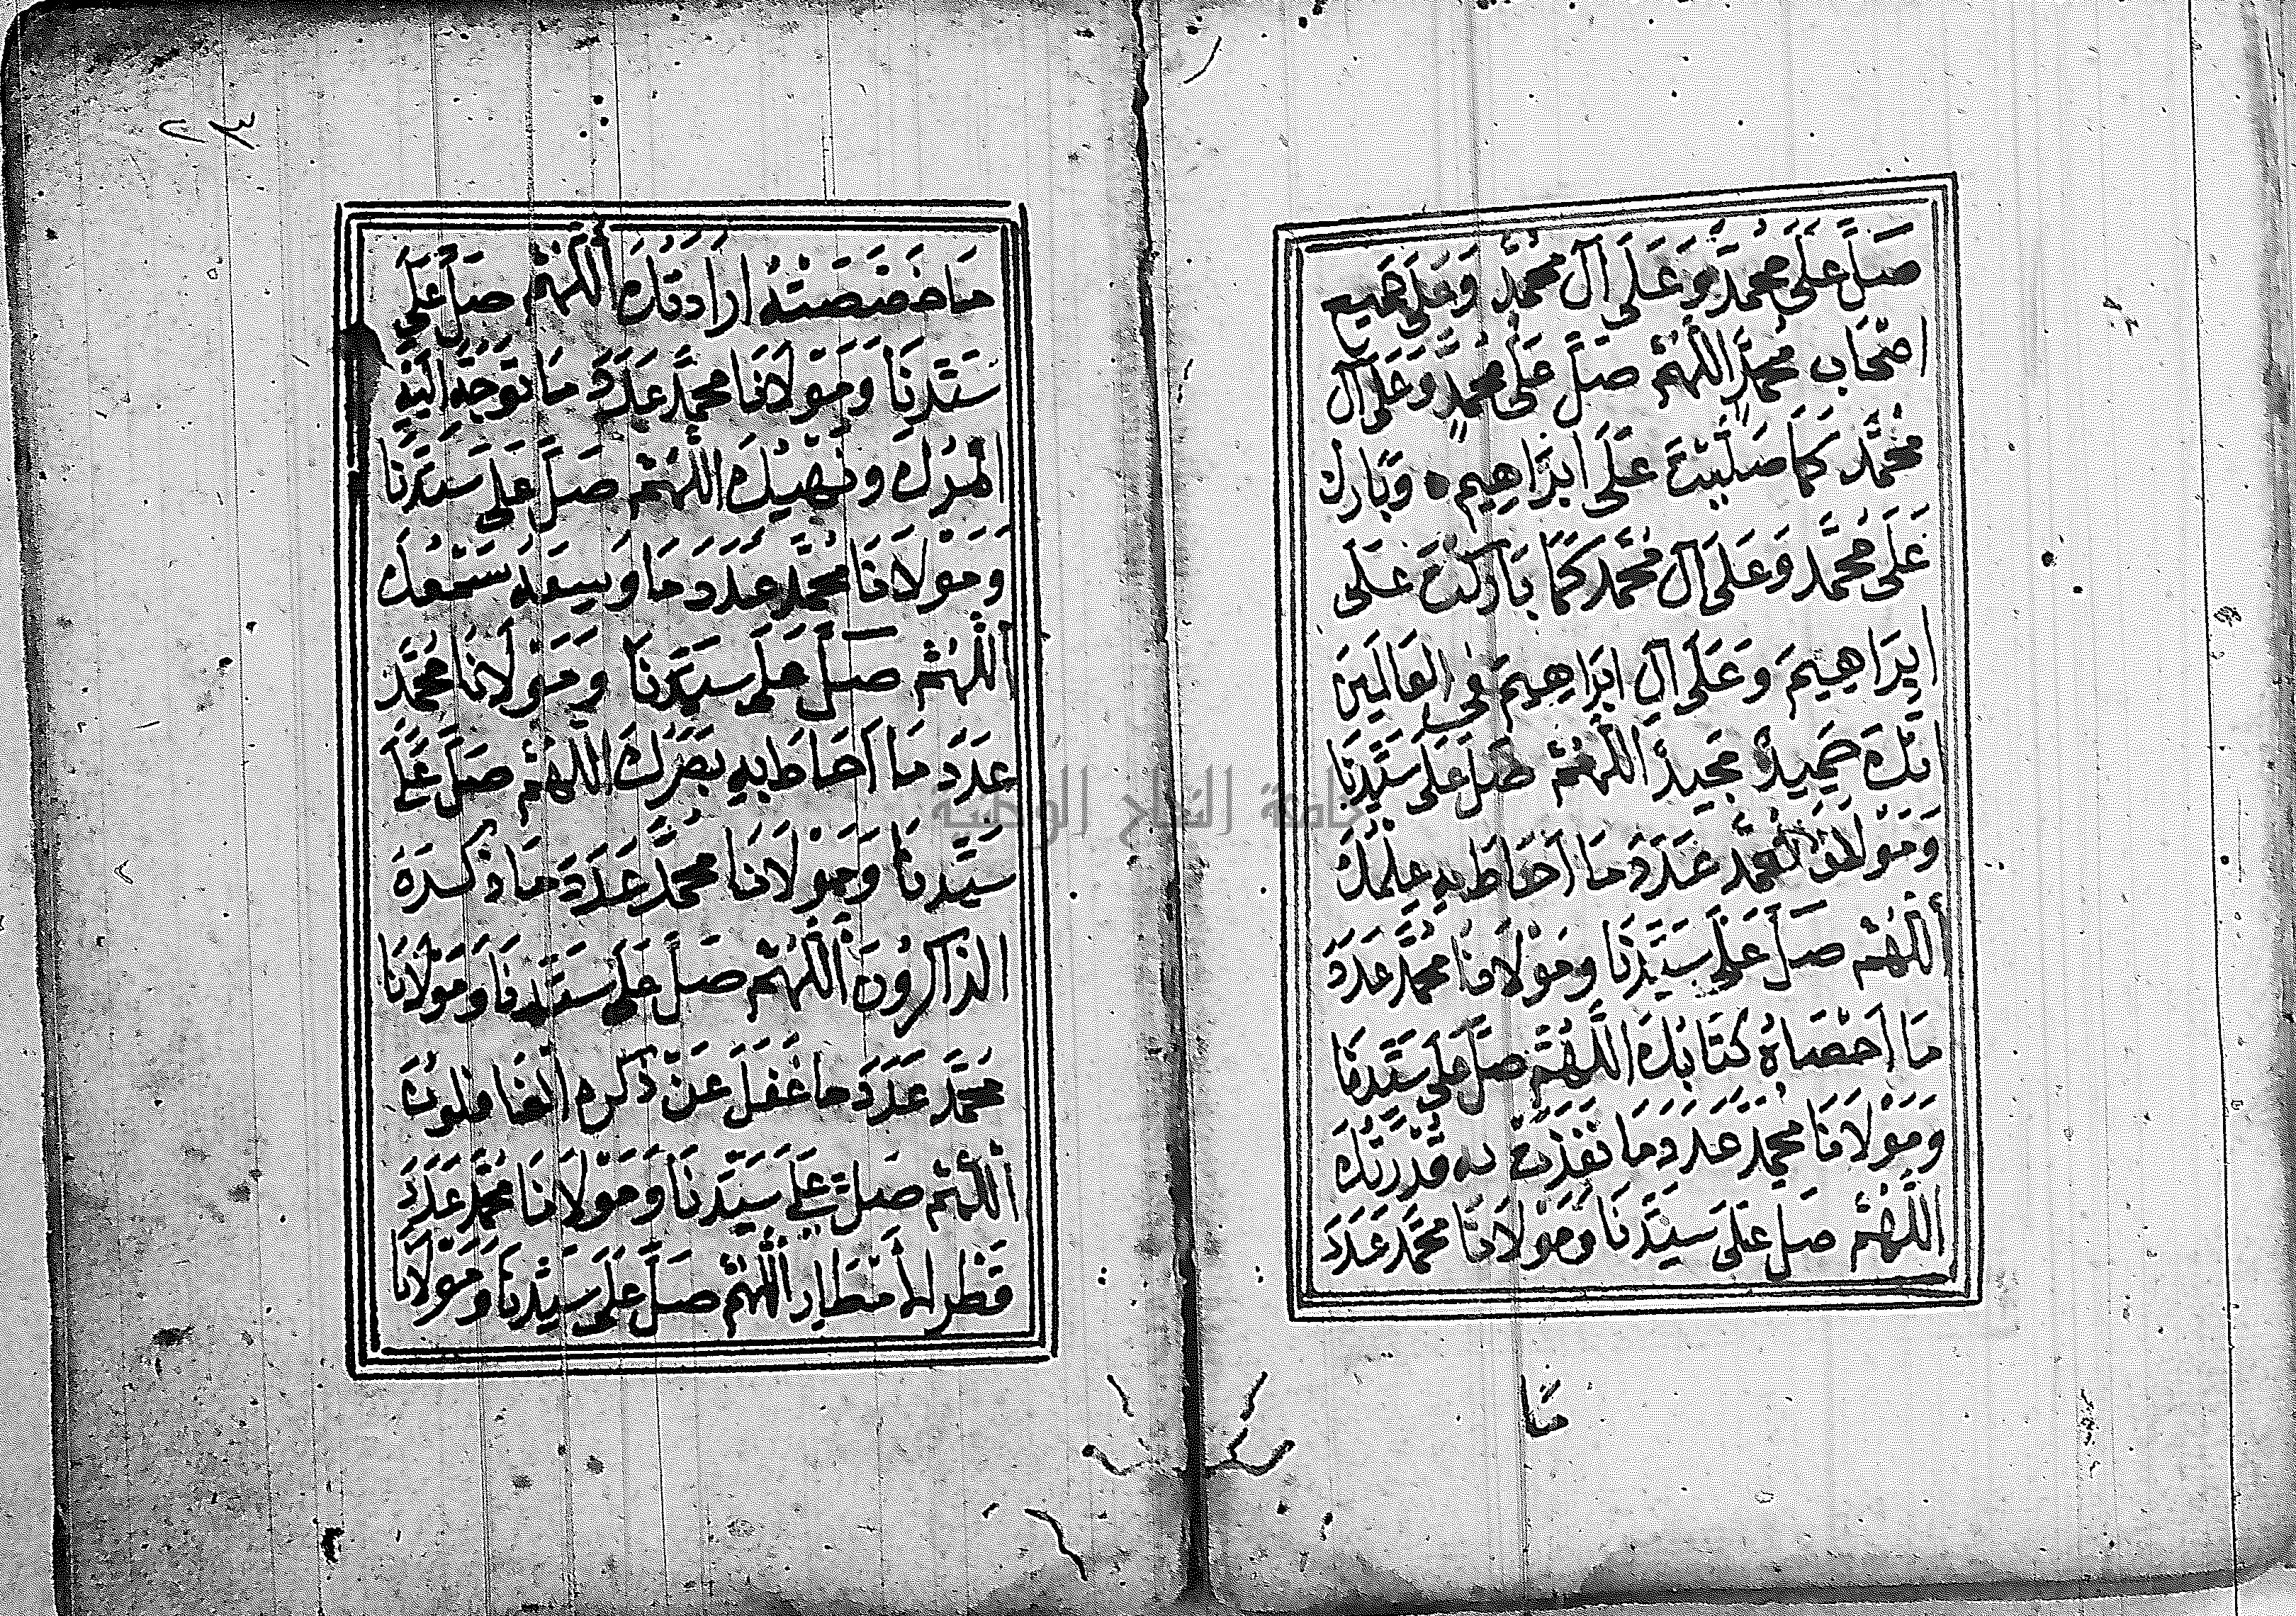 صَلِّ عَلَى مُحَمَّدٍ وَعَلَى آلِ مُحَمَّدٍ وَعَلَى جَمِيعِ
اصْحَابِ مُحَمَّدٍ اللَّهُمَّ صَلِّ عَلَى مُحَمَّدٍ وَعَلَى آلِ
مُحَمَّدٍ كَمَا صَلَّيْتَ عَلَى ابْرَاهِيمَ وَبَارِك
عَلَى مُحَمَّدٍ وَعَلَى آلِ مُحَمَّدٍ كَمَا بَارَكْتَ عَلَى
ابْرَاهِيمَ وَعَلَى آلِ ابْرَاهِيمَ فِي العَالَمِينَ
انَّكَ حَمِيدٌ مَجِيدٌ اللَّهُمَّ صَلِّ عَلَى سَيِّدِنَا
وَمَوْلَانَا مُحَمَّدٍ عَدَدَ مَا اَحَاطَ بِهِ عِلْمُكَ
اَللَّهُمَّ صَلِّ عَلَى سَيِّدِنَا وَمَوْلَانَا مُحَمَّدٍ عَدَدَ
مَا اَحْصَاهُ كِتَابُكَ اللَّهُمَّ صَلِّ عَلَى سَيِّدِنَا
وَمَوْلَانَا مُحَمَّدٍ عَدَدَ مَا نَفَذَتْ بِهِ قُدْرَتُكَ
اللَّهُمَّ صَلِّ عَلَى سَيِّدِنَا وَمَوْلَانَا مُحَمَّدٍ عَدَدَ
مَا
٢٣
مَا خَصَّصَتْهُ ارَادَتُكَ اَللَّهُمَّ صَلِّ عَلَى
سَيِّدِنَا وَمَوْلَانَا مُحَمَّدٍ عَدَدَ مَا تَوَجَّهَ الَيْهِ
امْرُكَ وَنَهْيُكَ اللَّهُمَّ صَلِّ عَلَى سَيِّدِنَا
وَمَوْلَانَا مُحَمَّدٍ عَدَدَ مَا وَسِعَهُ سَمْعُكَ
اَللَّهُمَّ صَلِّ عَلَى سَيِّدِنَا وَمَوْلَانَا مُحَمَّدٍ
عَدَدَ مَا اَحَاطَ بِهِ بَصَرُكَ اَللَّهُمَّ صَلِّ عَلَى
سَيِّدِنَا وَمَوْلَانَا مُحَمَّدٍ عَدَدَ مَا ذَكَرَهُ
الذَّاكِرُونَ اَللَّهُمَّ صَلِّ عَلَى سَيِّدِنَا وَمَوْلَانَا
مُحَمَّدٍ عَدَدَ مَا غَفَلَ عَنْ ذِكْرِهِ الْغَافِلُونَ
اَللَّهُمَّ صَلِّ عَلَى سَيِّدِنَا وَمَوْلَانَا مُحَمَّدٍ عَدَدَ
قَطْرِ الأَمْطَارِ اَللَّهُمَّ صَلِّ عَلَى سَيِّدِنَا وَمَوْلَانَا
جامعة النجاح الوطنية